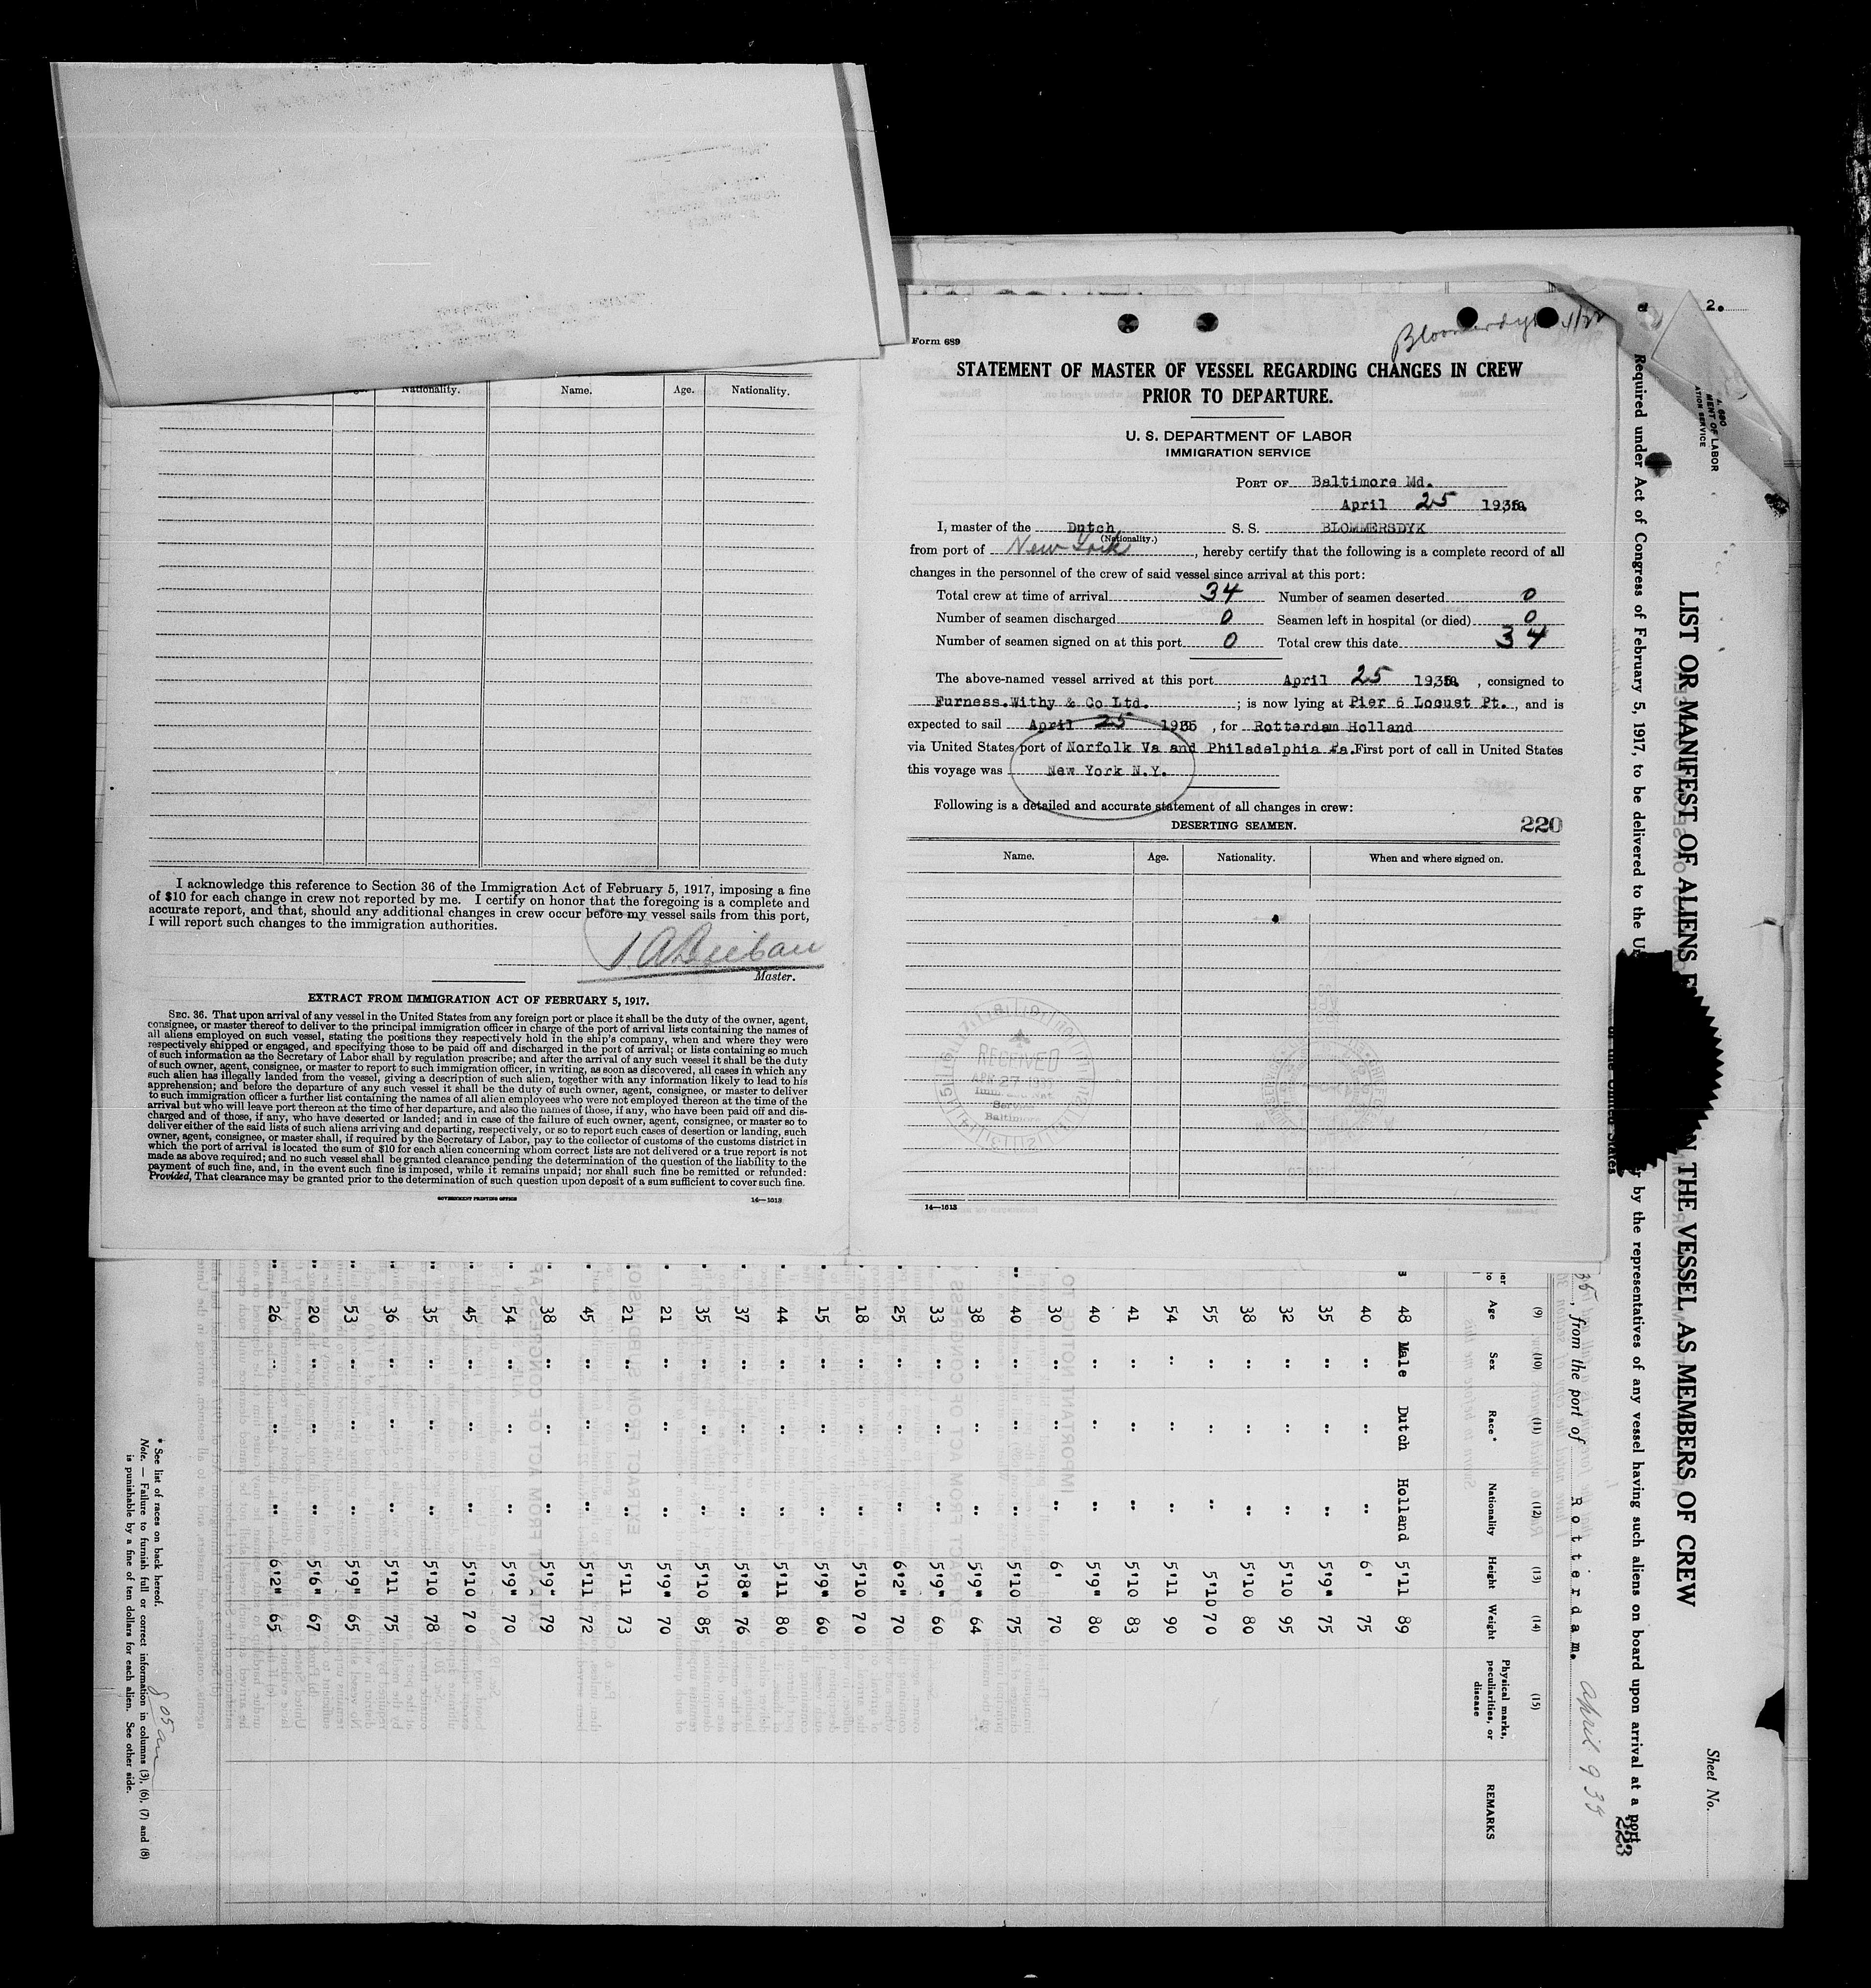 Form 689
STATEMENT OF MASTER OF VESSEL REGARDING CHANGES IN CREW
PRIOR TO DEPARTURE.
U. S. DEPARTMENT OF LABOR
IMMIGRATION SERVICE
PORT OF Baltimore Md.
April 25 1935
I, master of the Dutch S. S. BLOMMERSDYK
(Nationality.)
from port of New York, hereby certify that the following is a complete record of all
changes in the personnel of the crew of said vessel since arrival at this port:
Total crew at time of arrival 34 Number of seamen deserted 0
Number of seamen discharged 0 Seamen left in hospital (or died) 0
Number of seamen signed on at this port 0 Total crew this date 34
The above-named vessel arrived at this port April 25 1935, consigned to
Furness.Withy & Co Ltd. ; is now lying at Pier 6 Locust Pt., and is
expected to sail April 25 1935, for Rotterdam Holland
via United States port of Norfolk Va and Philadelphia Pa. First port of call in United States
this voyage was New York N.Y.
Following is a detailed and accurate statement of all changes in crew:
DESERTING SEAMEN. 220
Name. Age. Nationality. When and where signed on.
RECEIVED
APR 27
Baltimore
14—1613
Nationality. Name. Age. Nationality.
I acknowledge this reference to Section 36 of the Immigration Act of February 5, 1917, imposing a fine
of $10 for each change in crew not reported by me. I certify on honor that the foregoing is a complete and
accurate report, and that, should any additional changes in crew occur before my vessel sails from this port,
I will report such changes to the immigration authorities.
Master.
EXTRACT FROM IMMIGRATION ACT OF FEBRUARY 5, 1917.
SEC. 36. That upon arrival of any vessel in the United States from any foreign port or place it shall be the duty of the owner, agent,
consignee, or master thereof to deliver to the principal immigration officer in charge of the port of arrival lists containing the names of
all aliens employed on such vessel, stating the positions they respectively hold in the ship's company, when and where they were
respectively shipped or engaged, and specifying those to be paid off and discharged in the port of arrival; or lists containing so much
of such information as the Secretary of Labor shall by regulation prescribe; and after the arrival of any such vessel it shall be the duty
of such owner, agent, consignee, or master to report to such immigration officer, in writing, as soon as discovered, all cases in which any
such alien has illegally landed from the vessel, giving a description of such alien, together with any information likely to lead to his
apprehension; and before the departure of any such vessel it shall be the duty of such owner, agent, consignee, or master to deliver
to such immigration officer a further list containing the names of all alien employees who were not employed thereon at the time of the
arrival but who will leave port thereon at the time of her departure, and also the names of those, if any, who have been paid off and dis-
charged and of those, if any, who have deserted or landed; and in case of the failure of such owner, agent, consignee, or master so to
deliver either of the said lists of such aliens arriving and departing, respectively, or so to report such cases of desertion or landing, such
owner, agent, consignee, or master shall, if required by the Secretary of Labor, pay to the collector of customs of the customs district in
which the port of arrival is located the sum of $10 for each alien concerning whom correct lists are not delivered or a true report is not
made as above required; and no such vessel shall be granted clearance pending the determination of the question of the liability to the
payment of such fine, and, in the event such fine is imposed, while it remains unpaid; nor shall such fine be remitted or refunded:
Provided, That clearance may be granted prior to the determination of such question upon deposit of a sum sufficient to cover such fine.
GOVERNMENT PRINTING OFFICE 14—1613
2.
Sheet No.
LIST OR MANIFEST OF ALIENS THE VESSEL AS MEMBERS OF CREW
Required under Act of Congress of February 5, 1917, to be delivered to the by the representatives of any vessel having such aliens on board upon arrival at a port
223
35, from the port of Rotterdam. April 9 35
(9) (10) (11) (12) (13) (14) (15)
Age Sex Race* Nationality Height Weight Physical marks, peculiarities, or disease REMARKS
48 Male Dutch Holland 5'11 89
40 " " " 6' 75
35 " " " 5'9" 75
32 " " " 5'10 95
38 " " " 5'10 80
55 " " " 5'10 70
54 " " " 5'11 90
41 " " " 5'10 83
40 " " " 5'9" 80
30 " " " 6' 70
40 " " " 5'10 75
38 " " " 5'9" 64
33 " " " 5'9" 60
25 " " " 6'2" 70
18 " " " 5'10 70
15 " " " 5'9" 60
44 " " " 5'11 80
37 " " " 5'8" 76
35 " " " 5'10 85
21 " " " 5'9" 70
21 " " " 5'11 73
45 " " " 5'11 72
38 " " " 5'9" 79
54 " " " 5'9" 70
45 " " " 5'10 70
35 " " " 5'10 78
36 " " " 5'11 75
53 " " " 5'9" 65
20 " " " 5'6" 67
26 " " " 6'2" 65
* See list of races on back hereof.
Note. — Failure to furnish full or correct information in columns (3), (6), (7) and (8)
is punishable by a fine of ten dollars for each alien. See other side.